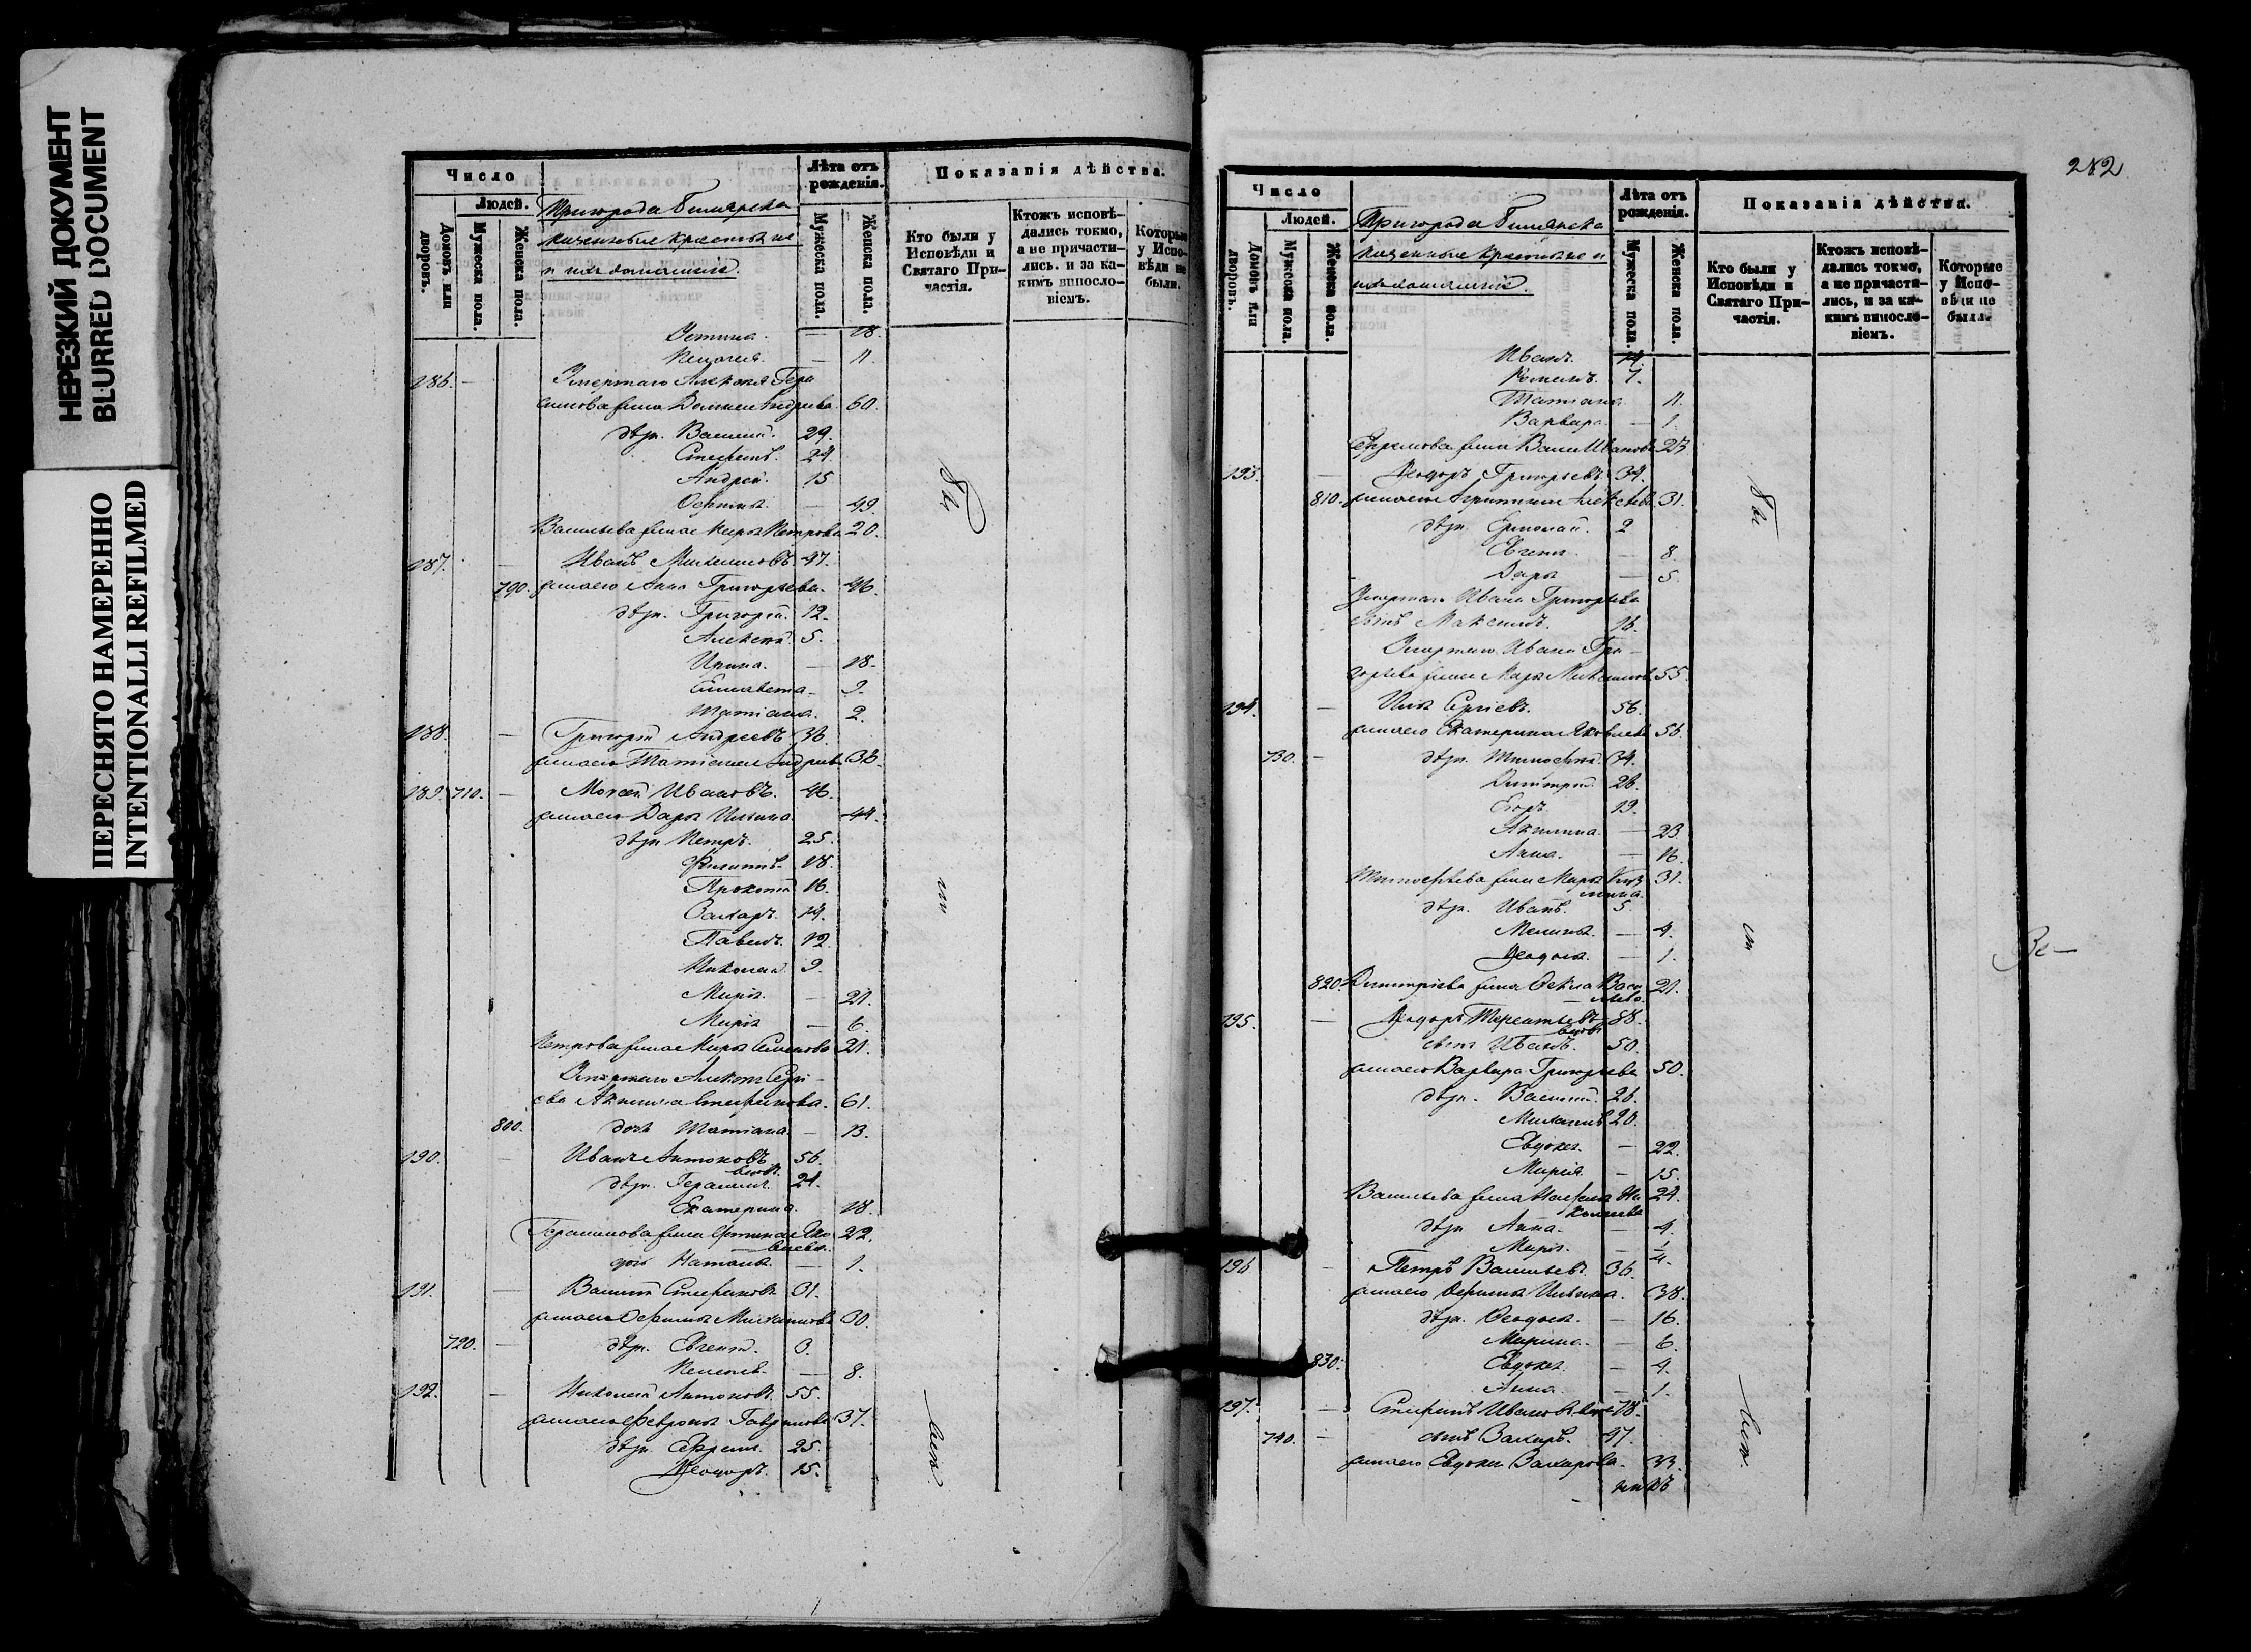 НЕРЕЗКИЙ ДОКУМЕНТ
BLURRED DOCUMENT
ПЕРЕСНЯТО НАМЕРЕННО
INTENTIONALLI REFILMED
Число
Людей.
Домовъ или дворовъ.
Мужеска пола.
Женска пола.
Пригорода Билярска
и ихъ домашнiе.
Лѣта отъ рожденія.
Мужеска пола.
Женска пола.
Показанія дѣйства.
Кто были у Исповѣди и Святаго Причастія.
Ктожъ исповѣдались токмо, а не причастились, и за какимъ винословіемъ.
Которые у Исповѣди не были.
Устина. — 18.
Пелагея. — 11.
186. — Умершаго Алексѣя Гера
симова жена Андреева. 60.
дѣти. Василій. 29.
Стефанъ. 24.
Андрей. 15
— 49.
Васильева жена Марья Петрова 20.
187. — Иванъ Михайловъ. 47.
790. жена его Анна Григорьева. 46.
дѣти. Григорій. 12.
Алексѣй. 5.
Ирина. — 18.
Елисавета. — 9.
Татіана. 2.
188. — Григорій Андреевъ 36.
жена его Татіана Андреева 38.
189. 710. — Моисей Ивановъ. 46.
жена его Дарья Ильина 44.
дѣти Петръ. 25.
Филиппъ. 18.
Прокопій 16.
Захаръ. 14.
Павелъ. 12.
Николай. 9.
Марья. — 21.
Марья — 6.
Петрова жена Марья Семенова 21.
Умершаго Алексѣя Сергі-
ева Акилина Стефанова. 61.
800. дочь Татіана. — 13.
190. Иванъ Антоновъ 56.
вдовъ.
дѣти. Герасимъ. 24.
Екатерина. 18.
Герасимова жена Яко 22.
влева.
дочь Наталья. — 1.
191. — Василій Стефановъ 31.
жена его Михайлова 30.
720. — дѣти. Евгеній. 3.
Пелагея. — 8.
192. — Николай Антоновъ. 55.
жена его Феврония Гаврилова 37.
дѣти. Ефремъ. 25.
Ѳеодоръ. 15.
282
Число
Людей.
Домовъ или дворовъ.
Мужеска пола.
Женска пола.
Пригорода Билярска
Лѣта отъ рожденія.
Мужеска пола.
Женска пола.
Показанія дѣйства.
Кто были у Исповѣди и Святаго Причастія.
Ктожъ исповѣдались токмо, а не причастились, и за какимъ винословіемъ.
Которые у Исповѣди не были.
Иванъ. 14.
Романъ. 7.
Татіана. 11.
Варвара — 1.
Ефремова жена Васса Иванова 23
193. — Ѳеодоръ Григорьевъ 34.
810. жена его Агрипина Алексѣева 31.
дѣти. Ермолай. 2
Евгенія. — 8.
Дарья — 5.
Умершаго Ивана Григорьева
сынъ Максимъ. 16.
Умершаго Ивана Гри-
горьева жена Марья 55.
194. — Илья Сергіевъ. 56.
жена его Екатерина Яковлева 56
730. — дѣти. Тимофей. 34.
Димитрій. 26.
Егоръ. 19.
Акилина. — 23.
Анна. — 16.
Тимофеева жена Марья Кузь 31.
мина.
дѣти. Иванъ. 5.
Меланья. — 4.
Ѳеодосья. — 1.
820. Димитріева жена Ѳекла Васи 21.
льева.
195. — Ѳеодоръ Терентьевъ 88.
вдовъ
сынъ Иванъ. 50.
жена его Варвара Григорьева 50.
дѣти. Василій. 26.
Михаилъ 20.
Евдокія. — 22.
Марья. — 15.
Васильева жена Ни 24.
колаева
дѣти Анна. — 4.
Марья. — 1/4.
196 — Петръ Васильевъ. 36.
жена его Ильина. 38.
дѣти. Ѳеодосья. — 16.
Марина. — 6.
830. Евдокія. — 4.
Анна. — 1.
197. — Стефанъ Ивановъ вдовъ 78.
740. — сынъ Захаръ. 47.
жена его Евдокія Захарова. 33.